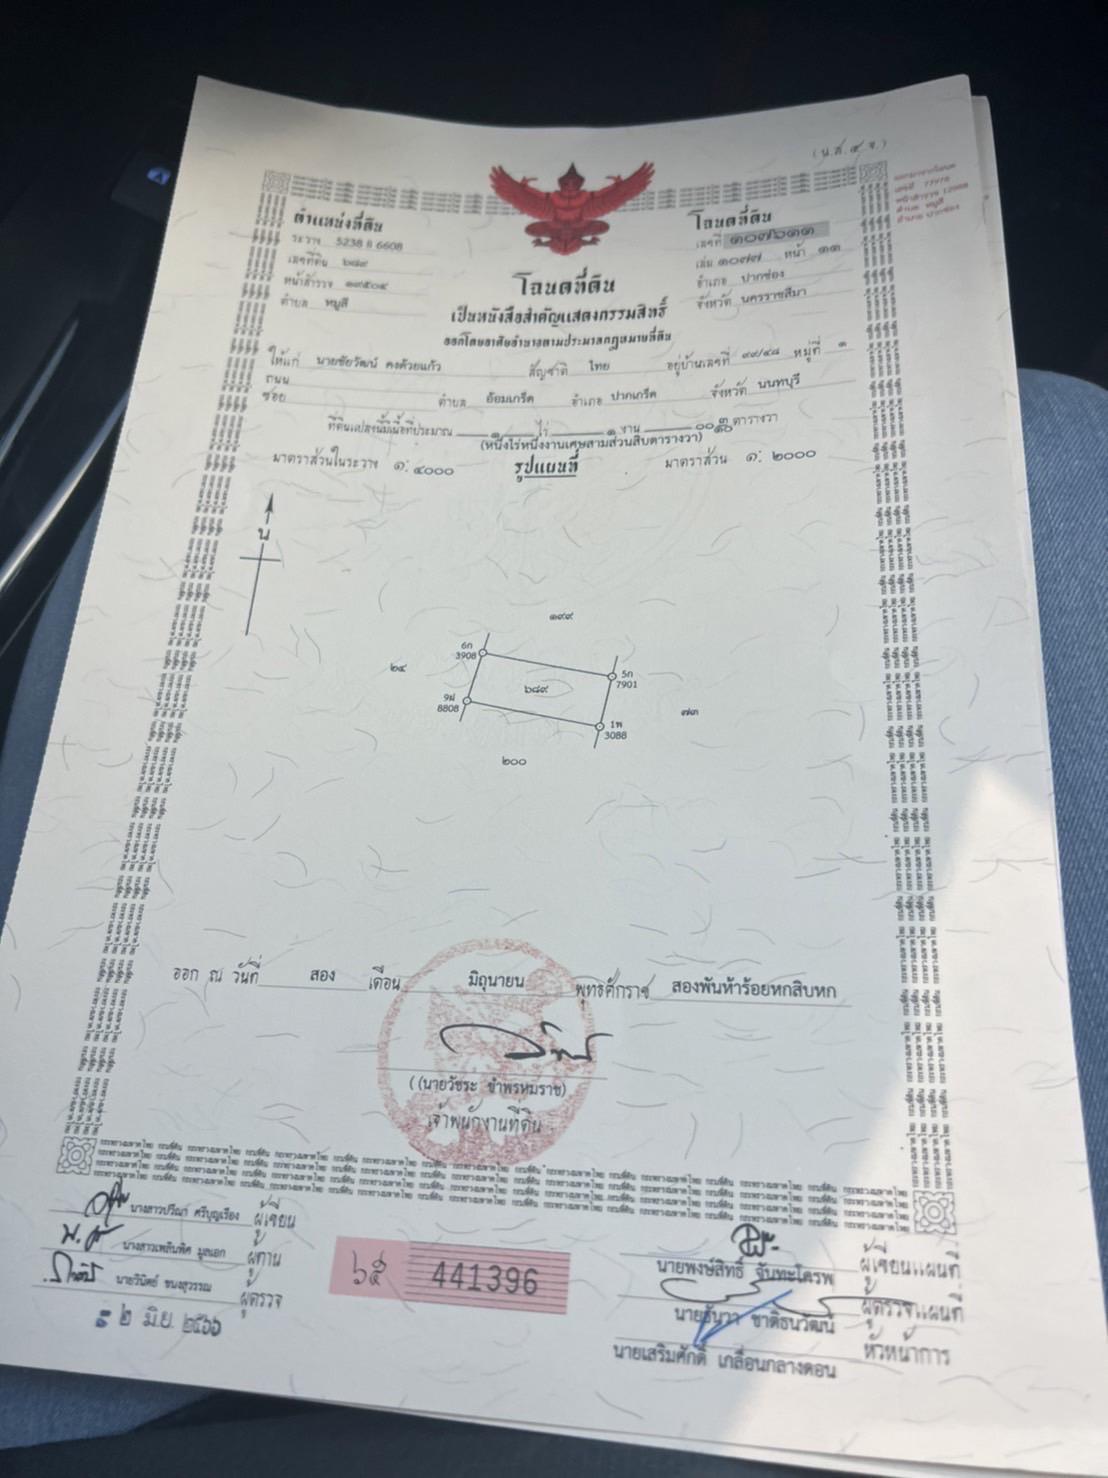 (น.ส. ๔ จ.)
ตำแหน่งที่ดิน
ระวาง 5238 II 6608
เลขที่ดิน ๖๘๙
หน้าสำรวจ ๑๙๕๐๔
ตำบล หมูสี
โฉนดที่ดิน
เลขที่ ๑๐๗๖๓๓
เล่ม ๑๐๗๗ หน้า ๓๓
อำเภอ ปากช่อง
จังหวัด นครราชสีมา
โฉนดที่ดิน
เป็นหนังสือสำคัญแสดงกรรมสิทธิ์
ออกโดยอาศัยอำนาจตามประมวลกฎหมายที่ดิน
ให้แก่ นายชัยวัฒน์ คงด้วยแก้ว สัญชาติ ไทย อยู่บ้านเลขที่ ๙๙/๔๘ หมู่ที่ ๑
ถนน
ซอย ตำบล อ้อมเกร็ด อำเภอ ปากเกร็ด จังหวัด นนทบุรี
ที่ดินแปลงนี้มีเนื้อที่ประมาณ ๑ ไร่ ๑ งาน ๐๐ ๓/๑๐ ตารางวา
(หนึ่งไร่หนึ่งงานเศษสามส่วนสิบตารางวา)
มาตราส่วนในระวาง ๑: ๔๐๐๐ รูปแผนที่ มาตราส่วน ๑: ๒๐๐๐
น
๑๙๙
6ก
3908
๒๔
5ก
7901
๖๘๙
9ฝ
8808
๗๓
1พ
3088
๒๐๐
ออก ณ วันที่ สอง เดือน มิถุนายน พุทธศักราช สองพันห้าร้อยหกสิบหก
((นายวัชระ ขำพรหมราช)
เจ้าพนักงานที่ดิน
นางสาวปวีณา ศรีบุญเรือง ผู้เขียน
นางสาวเพลินพิศ มูลเอก ผู้ทาน
นายวินิตย์ ชนงสุวรรณ ผู้ตรวจ
๒ มิ.ย. ๒๕๖๖
๖๕ 441396
นายพงษ์สิทธิ์ จันทะโครพ ผู้เขียนแผนที่
นายธันวา ชาติธนวัฒน์ ผู้ตรวจแผนที่
นายเสริมศักดิ์ เกลื่อนกลางดอน หัวหน้าการ